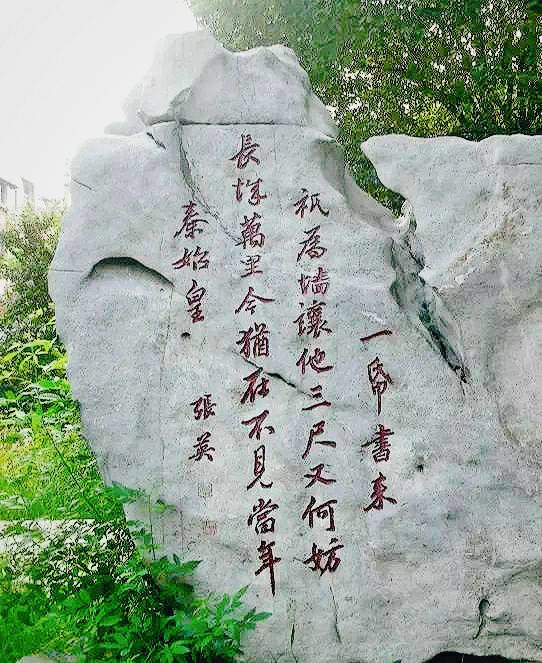 一帋書来
祇為墻讓他三尺又何妨
長城萬里今猶在不見當年
秦始皇
張英